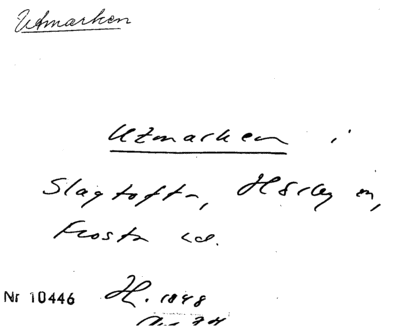 Utmarken
Utmarken i
Slagtofta, Hörby sn,
Frosta hd.
Nr 10446 H. 1848